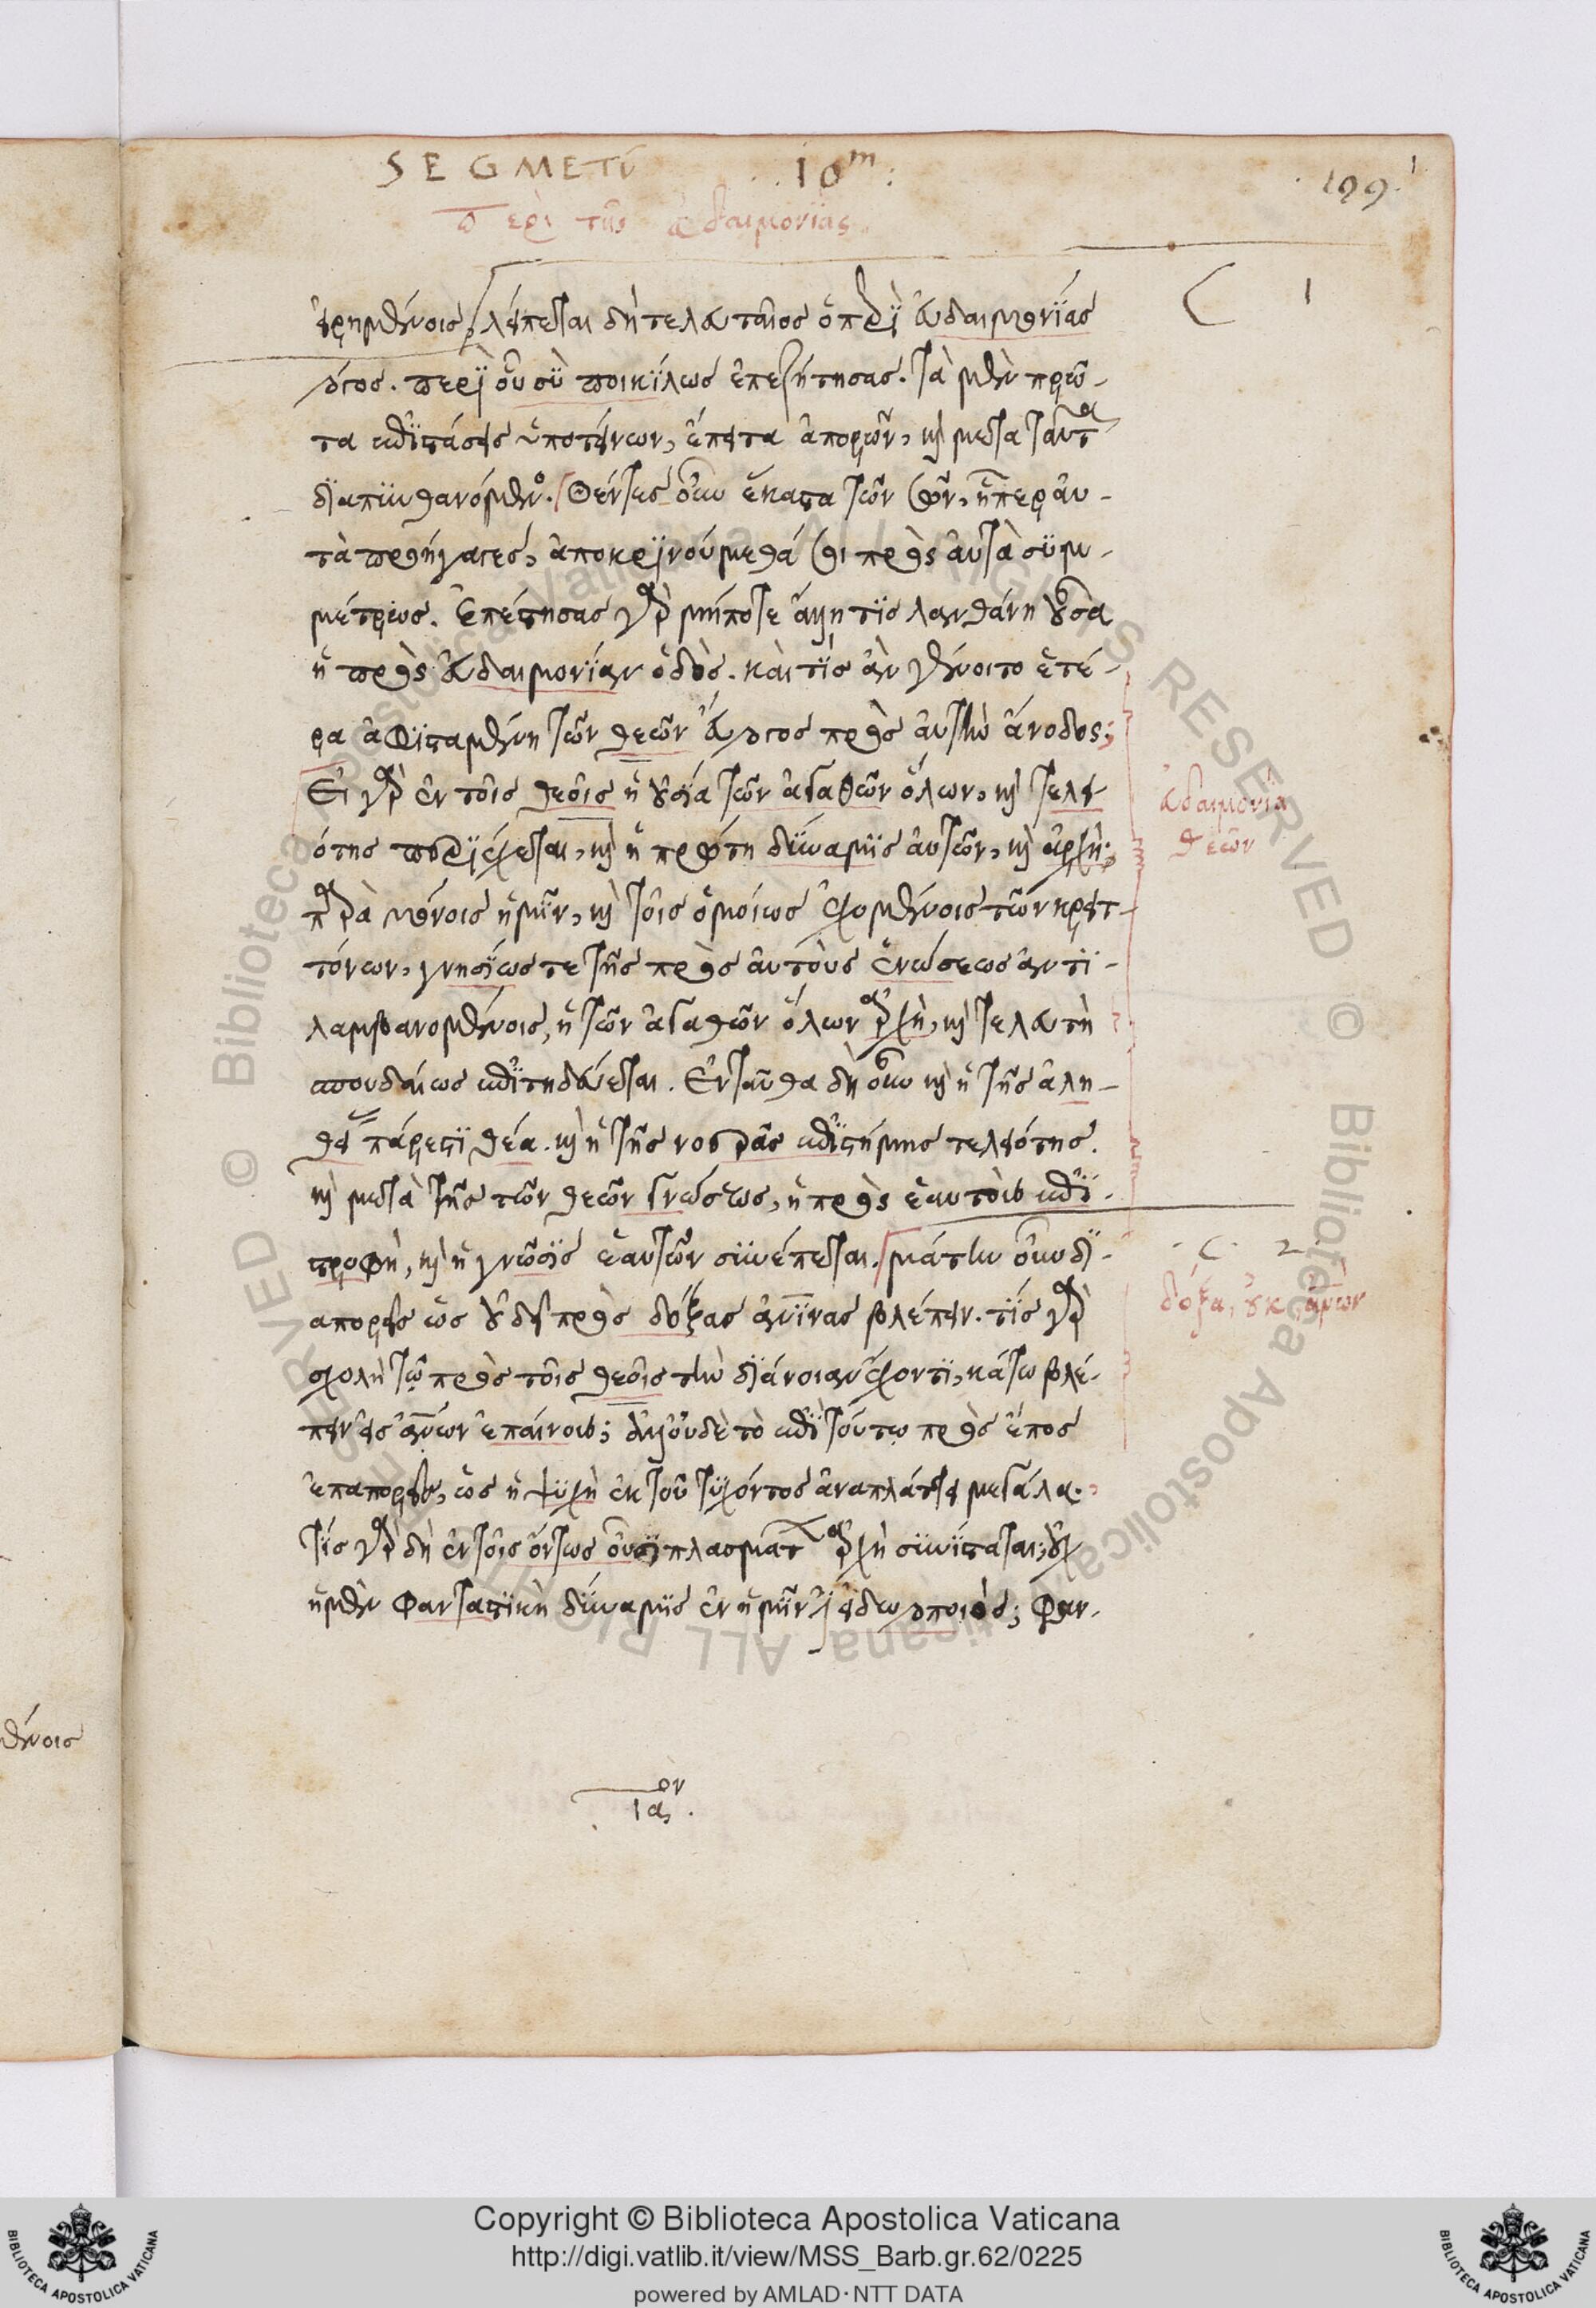 SEGMETū 10m:
199.
περὶ τῆς εὐδαιμονίας.
εἰρημένοις λείπεται δὴ τελευταῖος ὁ περὶ εὐδαιμονίας
1
λόγος. περὶ οὗ σὺ ποικίλως ἐπεζήτησας. τὰ μὲν πρῶ-
τα ἐπιστάσεις ὑποτείνων, ἔπειτα ἀπορῶν, καὶ μετὰ ταῦτα
διαπυνθανόμενος. θέντες οὖν ἕκαστα τῶν σῶν, ᾗπερ αὐ-
τὰ προήγαγες, ἀποκρινούμεθά σοι πρὸς αὐτὰ συμ-
μέτρως. Ἐπέστησας γὰρ μήποτε ἄλλη τις λανθάνη οὖσα
ἡ πρὸς εὐδαιμονίαν ὁδός. καὶ τίς ἂν γένοιτο ἑτέ-
ρα ἀφισταμένη τῶν θεῶν εὔλογος πρὸς αὐτὴν ἄνοδος;
Εἰ γὰρ ἐν τοῖς θεοῖς ἡ οὐσία τῶν ἀγαθῶν ὅλων, καὶ τελει
εὐδαιμονία
ότης περιέχεται, καὶ ἡ πρώτη δύναμις αὐτῶν, καὶ ἀρχή.
θεῶν
παρὰ μόνοις ἡμῖν, καὶ τοῖς ὁμοίως ἐχομένοις τῶν κρειτ-
τόνων, γνησίως τε τῆς πρὸς αὐτοὺς ἑνώσεως ἀντι-
λαμβανομένοις, ἡ τῶν ἀγαθῶν ὅλων ἀρχὴ, καὶ τελευτὴ
σπουδαίως ἐπιτηδεύεται. Ἐνταῦθα δὴ οὖν καὶ ἡ τῆς ἀλη-
θείας πάρεστι θέα. καὶ ἡ τῆς νοερᾶς ἐπιστήμης τελειότης.
καὶ μετὰ τῆς τῶν θεῶν γνώσεως, ἡ πρὸς ἑαυτοὺς ἐπι-
στροφὴ, καὶ ἡ γνῶσις ἑαυτῶν συνέπεται. μάτην οὖν δι-
2
απορεῖς ὡς οὐ δεῖ πρὸς δόξας ἀνθρωπίνας βλέπειν. τίς γὰρ
δόξα,
σχολὴ τῷ πρὸς τοῖς θεοῖς τὴν διάνοιαν ἔχοντι, κάτω βλέ-
πειν εἰς ἀνθρώπων ἐπαίνους; ἀλλ' οὐδὲ τὸ ἐπὶ τούτῳ πρὸς ἔπος
ἐπαπορεῖς, ὡς ἡ ψυχὴ ἐκ τοῦ τυχόντος ἀναπλάττει μεγάλα.
τίς γὰρ δὴ ἐν τοῖς ὄντως οὖσι πλασμάτων ἀρχὴ συνίσταται; οὐχ
ἡ μὲν φανταστικὴ δύναμις ἐν ἡμῖν ἐστὶν εἰδωλοποιός; φαν-
ια ον.
Copyright © Biblioteca Apostolica Vaticana
http://digi.vatlib.it/view/MSS_Barb.gr.62/0225
powered by AMLAD·NTT DATA
BIBLIOTECA APOSTOLICA VATICANA
BIBLIOTECA APOSTOLICA VATICANA